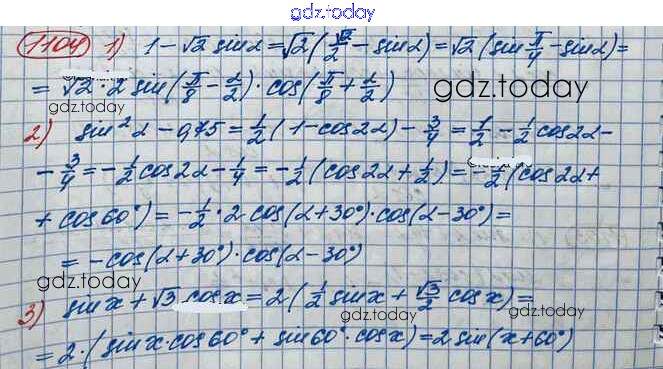 gdz.today
1104 1) 1 - √2 sinα = √2 (√2/2 - sinα) = √2 (sin π/4 - sinα) =
= √2 · 2 sin(π/8 - α/2) · cos(π/8 + α/2)
gdz.today
gdz.today
2) sin²α - 0,75 = 1/2 (1 - cos2α) - 3/4 = 1/2 - 1/2 cos2α -
- 3/4 = -1/2 cos2α - 1/4 = -1/2 (cos2α + 1/2) = -1/2 (cos2α +
+ cos60°) = -1/2 · 2 cos(α+30°) · cos(α-30°) =
= -cos(α+30°) · cos(α-30°)
gdz.today
gdz.today
3) sinx + √3 cosx = 2 (1/2 sinx + √3/2 cosx) =
gdz.today
gdz.today
= 2 · (sinx · cos60° + sin60° · cosx) = 2 sin(x+60°)